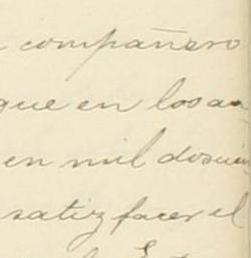 compañero
que en los
en mil
satizfacer el